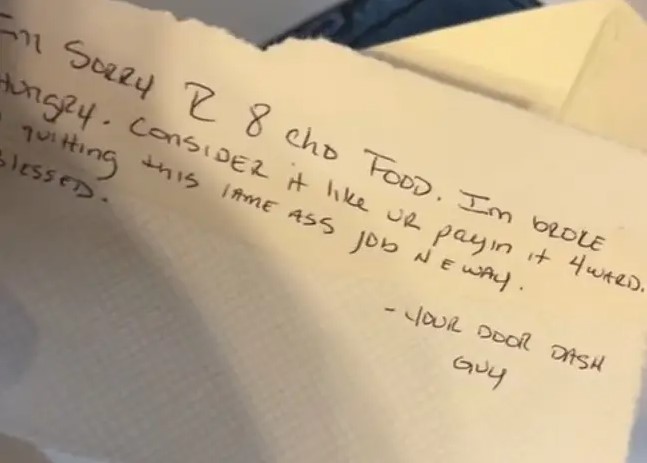 Im SORRY I 8 cho FOOD. Im bROKE
HUNgRY. CONSIDER it like UR payin it 4WARD.
quitting this lAME ASS job N E WAY.
blESSED.
- YOUR DOOR DASH
GUY